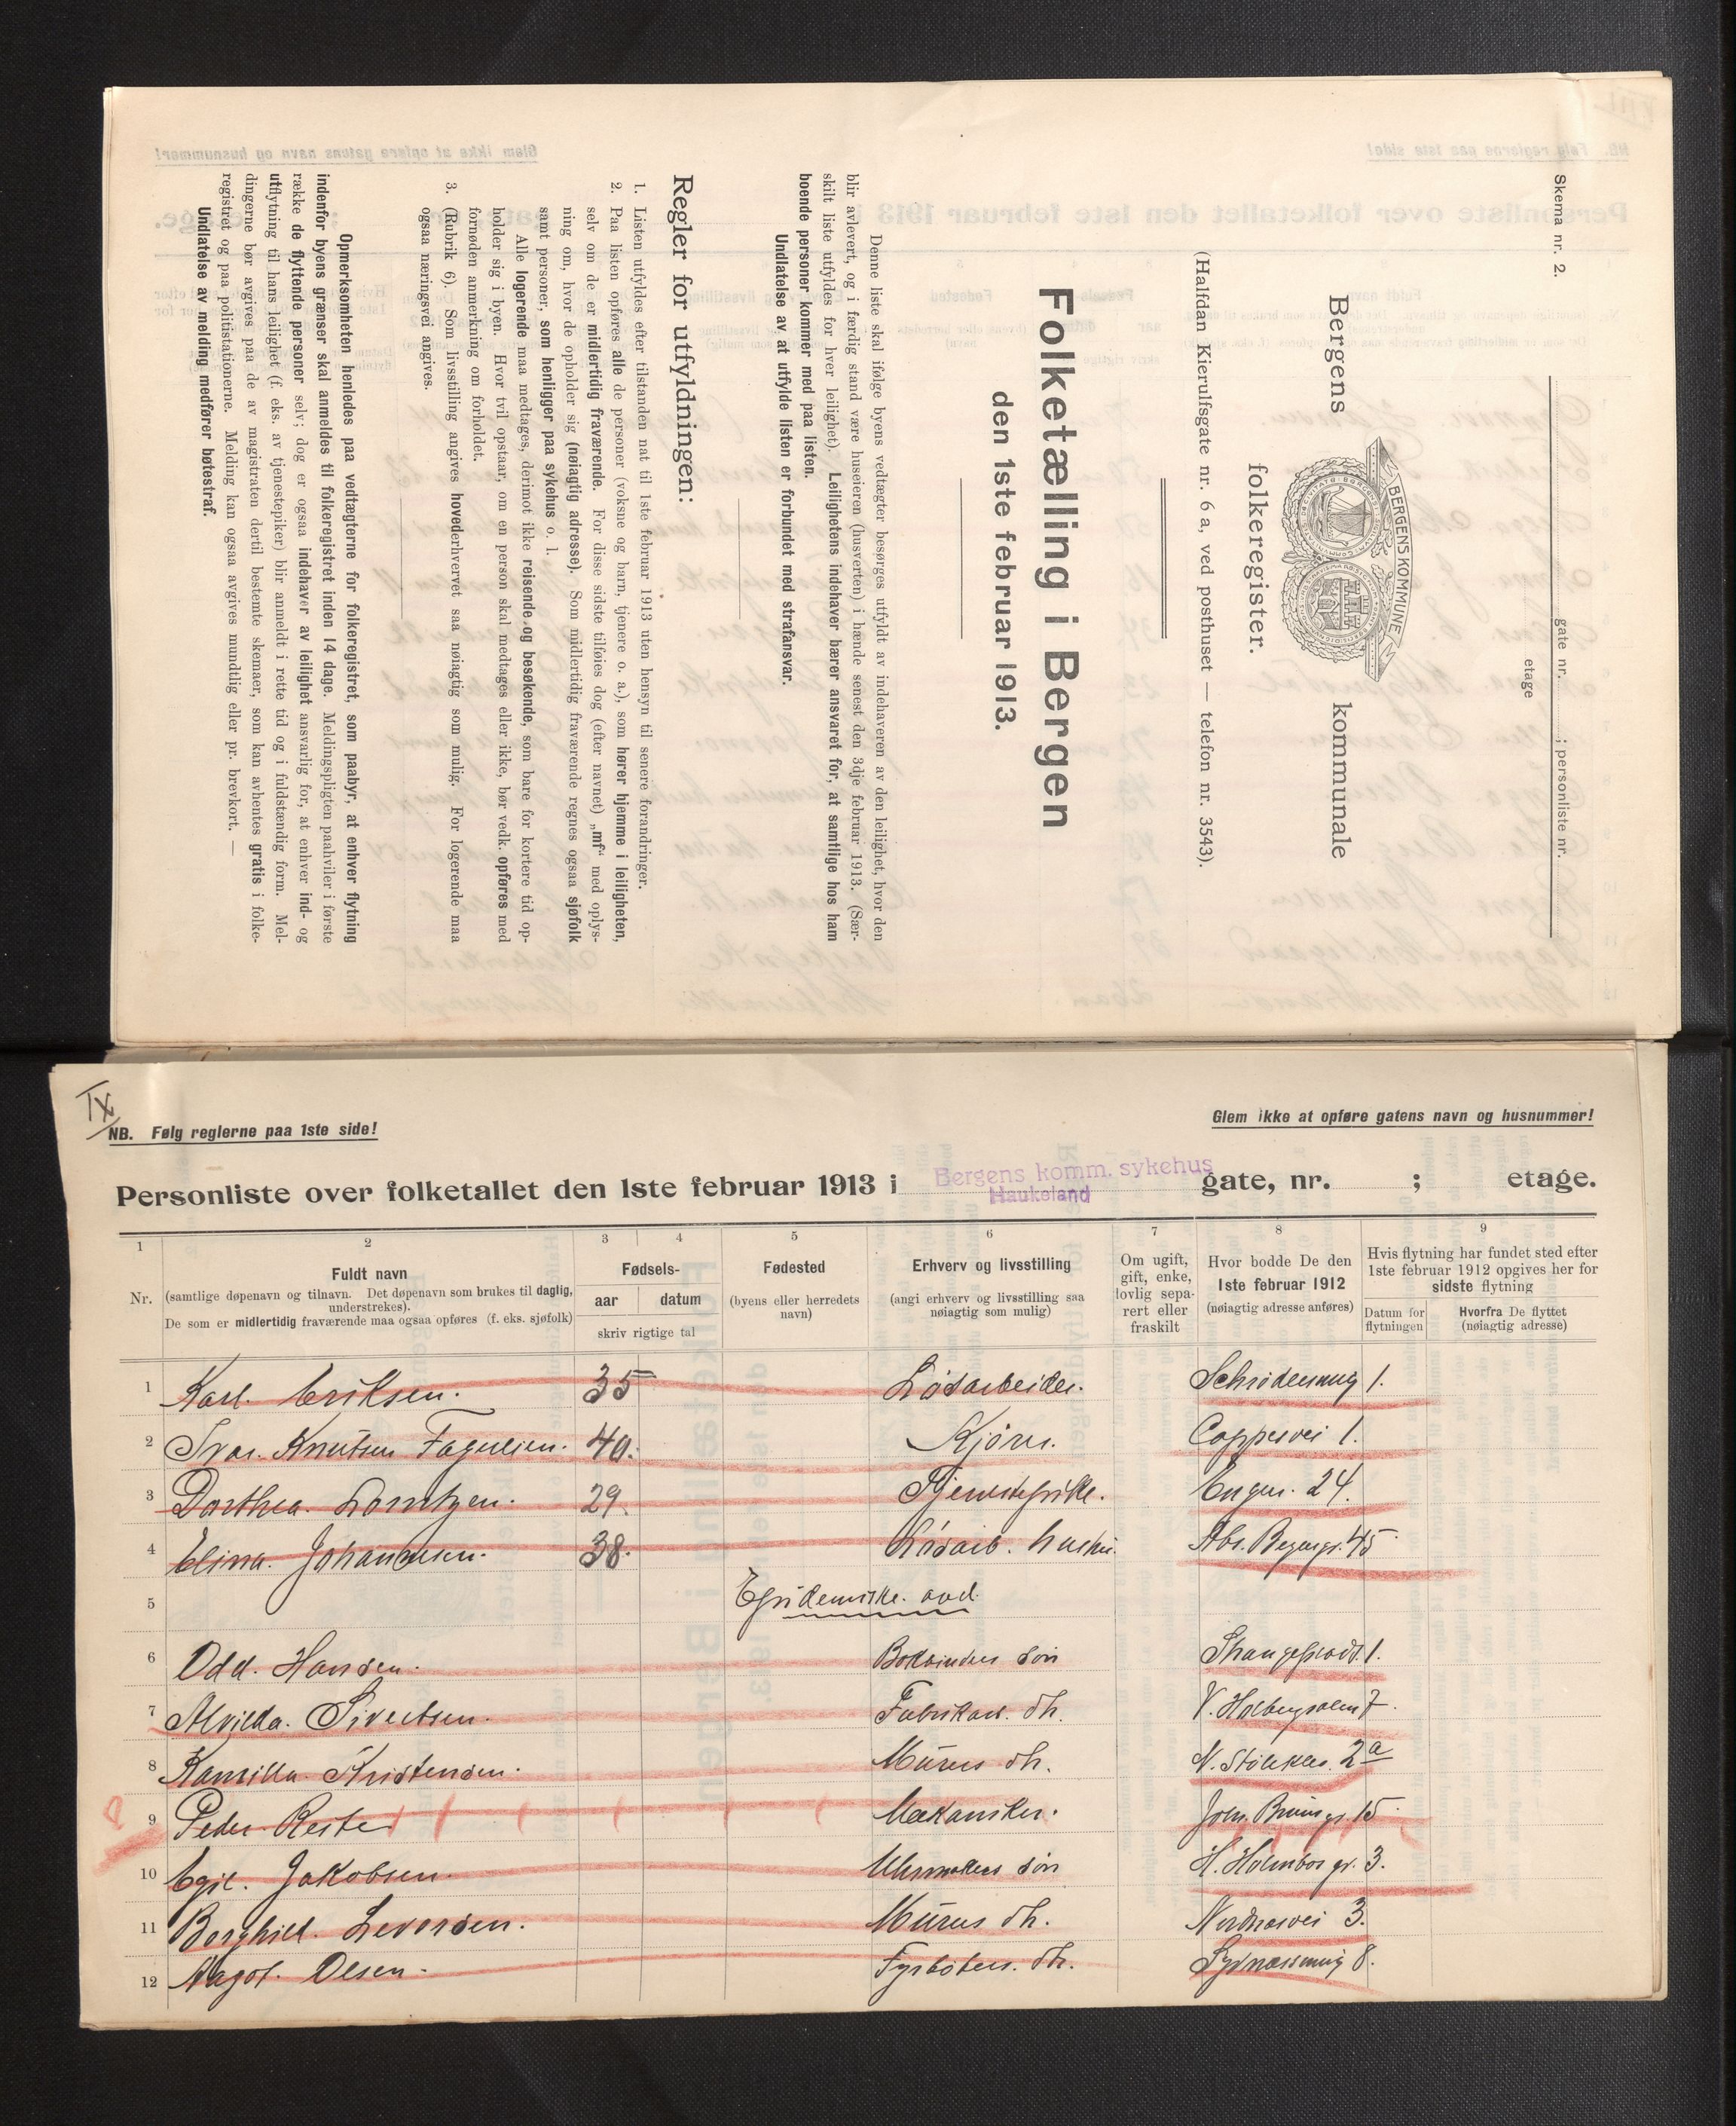 Skema nr. 2.
gate nr. ; personliste nr.
etage
Bergens kommunale
BERGENS KOMMUNE
folkeregister.
(Halfdan Kierulfsgate nr. 6 a, ved posthuset — telefon nr. 3543).
Folketælling i Bergen
den 1ste februar 1913.
Denne liste skal ifølge byens vedtægter besørges utfyldt av indehaveren av den leilighet, hvor den
blir avlevert, og i færdig stand være huseieren (husverten) i hænde senest den 3dje februar 1913. (Sær-
skilt liste utfyldes for hver leilighet). Leilighetens indehaver bærer ansvaret for, at samtlige hos ham
boende personer kommer med paa listen.
Undlatelse av at utfylde listen er forbundet med strafansvar.
Regler for utfyldningen:
1. Listen utfyldes efter tilstanden nat til 1ste februar 1913 uten hensyn til senere forandringer.
2. Paa listen opføres alle de personer (voksne og barn, tjenere o. a.), som hører hjemme i leiligheten,
selv om de er midlertidig fraværende. For disse sidste tilføies dog (efter navnet) „mf“ med oplys-
ning om, hvor de opholder sig (nøiagtig adresse). Som midlertidig fraværende regnes ogsaa sjøfolk
samt personer, som henligger paa sykehus o. l.
Alle logerende maa medtages, derimot ikke reisende og besøkende, som bare for kortere tid op-
holder sig i byen. Hvor tvil opstaar, om en person skal medtages eller ikke, bør vedk. opføres med
fornøden anmerkning om forholdet.
3. (Rubrik 6). Som livsstilling angives hovederhvervet saa nøiagtig som mulig. For logerende maa
ogsaa næringsvei angives.
Opmerksomheten henledes paa vedtægterne for folkeregistret, som paabyr, at enhver flytning
indenfor byens grænser skal anmeldes til folkeregistret inden 14 dage. Meldingspligten paahviler i første
række de flyttende personer selv; dog er ogsaa indehaver av leilighet ansvarlig for, at enhver ind- og
utflytning til hans leilighet (f. eks. av tjenestepiker) blir anmeldt i rette tid og i fuldstændig form. Mel-
dingerne bør avgives paa de av magistraten dertil bestemte skemaer, som kan avhentes gratis i folke-
registret og paa politistationerne. Melding kan ogsaa avgives mundtlig eller pr. brevkort. —
Undlatelse av melding medfører bøtestraf.
IX
NB. Følg reglerne paa 1ste side!
Glem ikke at opføre gatens navn og husnummer!
Personliste over folketallet den 1ste februar 1913 i Bergens komm. sykehus gate, nr. ; etage.
Haukeland
1 2 3 4 5 6 7 8 9
Nr. Fuldt navn (samtlige døpenavn og tilnavn. Det døpenavn som brukes til daglig, understrekes). De som er midlertidig fraværende maa ogsaa opføres (f. eks. sjøfolk)
Fødsels- aar datum skriv rigtige tal
Fødested (byens eller herredets navn)
Erhverv og livsstilling (angi erhverv og livsstilling saa nøiagtig som mulig)
Om ugift, gift, enke, lovlig sepa- rert eller fraskilt
Hvor bodde De den 1ste februar 1912 (nøiagtig adresse anføres)
Hvis flytning har fundet sted efter 1ste februar 1912 opgives her for sidste flytning
Datum for flytningen
Hvorfra De flyttet (nøiagtig adresse)
1 Karl. Eriksen. 35 Løsarbeider. Schrødersmug 1.
2 Ivar. Knutsen Fagerlien. 40. Kjører. Coppesvei 1.
3 Dorthea. Lorntzen. 29. Tjenestepike. Enger. 24.
4 Elina. Johannesen. 38. Løsarb. hustru. Abs. Beyersgt. 45
5 Epidemiske. avd.
6 Odd. Hansen. Bokbinders søn Strangeftrædt. 1.
7 Alvilda. Sivertsen. Fabrikarb. dtr. V. Holbergsalm 7.
8 Kamilla. Kristensen. Murers dtr. N. Stølekler. 2a
9 Peder. Reste Mekaniker. John Brunsgt. 15.
10 Egil. Jakobsen. Uhrmakers søn H. Holmboe gt. 3.
11 Borghild. Leversen. Murers dtr. Nordnesvei 3.
12 Magot. Olsen. Fyrbøters. dtr. Sydnessmug 8.